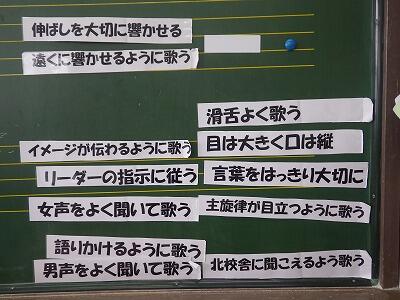 伸ばしを大切に響かせる
遠くに響かせるように歌う
滑舌よく歌う
イメージが伝わるように歌う
目は大きく口は縦
リーダーの指示に従う
言葉をはっきり大切に
女声をよく聞いて歌う
主旋律が目立つように歌う
語りかけるように歌う
男声をよく聞いて歌う
北校舎に聞こえるよう歌う